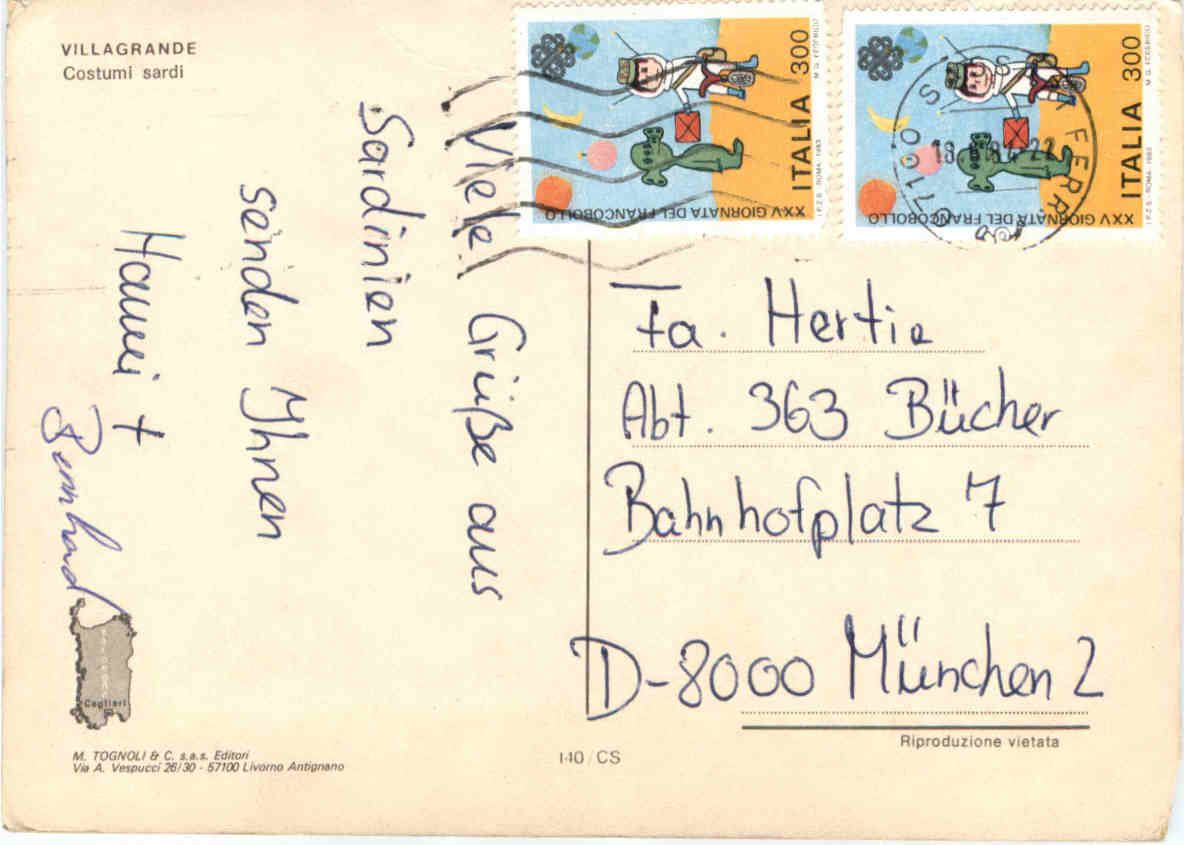 VILLAGRANDE
Costumi sardi
Viele Grüße aus
Sardinien
senden Ihnen
Hanni +
Bernhard
XXV GIORNATA DEL FRANCOBOLLO
ITALIA 300
I.P.Z.S. ROMA 1983
XXV GIORNATA DEL FRANCOBOLLO
ITALIA 300
I.P.Z.S. ROMA 1983
07100
FERR
Fa. Hertie
Abt. 363 Bücher
Bahnhofplatz 7
D-8000 München 2
Riproduzione vietata
Cagliari
M. TOGNOLI & C. s.a.s. Editori
Via A. Vespucci 26/30 - 57100 Livorno Antignano
140/CS